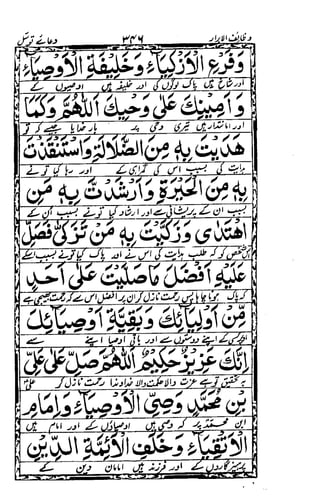 وظائف الابرار ۳۴۶ دعائے توسل
وَفَرْعِ الْاَزْكِيَاۤءِ وَخَلِيْفَةِ الْاَوْصِيَاۤءِ
اور شاخ ہیں پاک لوگوں کی اور خلیفہ ہیں اوصیوں کے
وَاَمِيْنِكَ عَلٰى وَحْيِكَ اَللّٰهُمَّ وَكَمَا
اور امانتدار ہیں تیری وحی پر بار خدایا جیسے کہ تو
هَدَيْتَ بِهٖ مِنَ الضَّلَالَةِ وَاسْتَنْقَذْتَ
ہدایت کی بسبب اس کے گمراہی سے اور رہا کیا تو نے
بِهٖ مِنَ الْحَيْرَةِ وَاَرْشَدْتَ بِهٖ مَنِ
بسبب ان کے پریشانی سے اور ارشاد کیا تو نے بسبب ان کے
اهْتَدٰى وَزَكَّيْتَ بِهٖ مَنْ تَزَكّٰى فَصَلِّ
شخص کو کہ طلب ہدایت کی اس نے اور پاک کیا تو نے بسبب اسکے
عَلَيْهِ اَفْضَلَ مَاصَلَّيْتَ عَلٰى اَحَدٍ
کہ پاک ہونا چاہا پس رحمت نازل کر ان پر افضل اس سے کہ رحمت بھیجی ہے
مِّنْ اَوْلِيَاۤئِكَ وَبَقِيَّةِ اَوْصِيَاۤئِكَ
اپنے دوستوں سے اور باقی اوصیا اپنے سے
اِنَّكَ عَزِيْزٌ حَكِيْمٌ اَللّٰهُمَّ صَلِّ عَلٰى عَلِيِّ
بہ تحقیق تو ہے عزت والا حکمت والا خداوندا رحمت نازل کر علیؑ
بْنِ مُحَمَّدٍ وَصِيِّ الْاَوْصِيَاۤءِ وَاِمَامِ
ابن محمدؑ پر کہ وصی ہیں اوصیاؤں کے اور امام ہیں
الْاَتْقِيَاۤءِ وَخَلَفِ الْاَئِمَّةِ الدِّيْنِ
پرہیزگاروں کے اور فرزند ہیں امامان دین کے